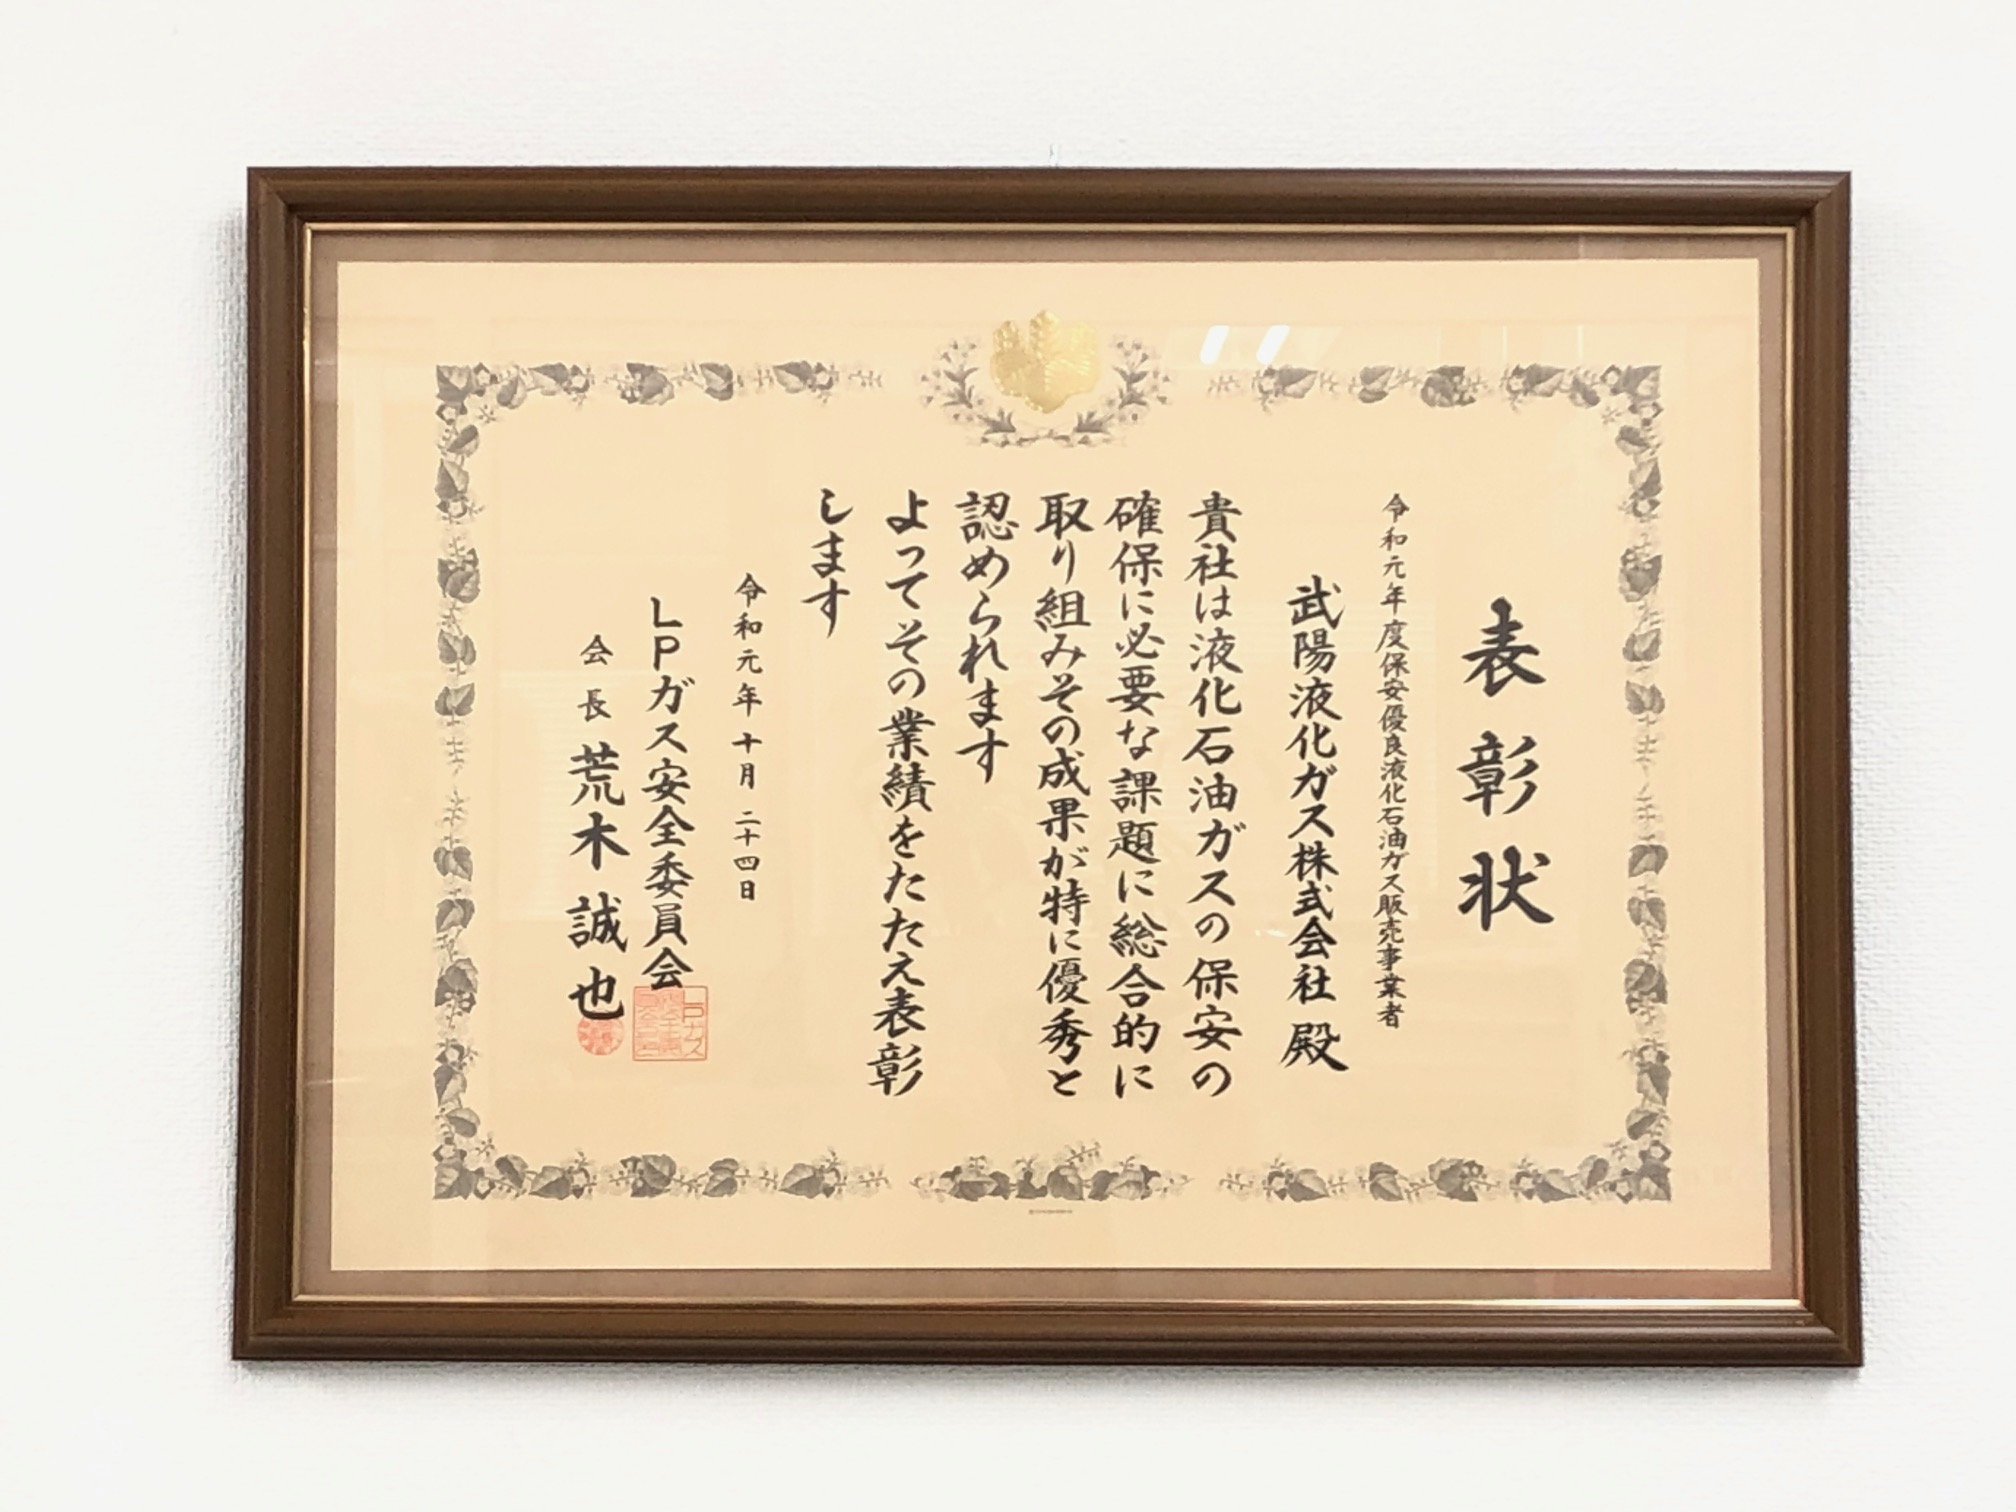 表彰状
令和元年度保安優良液化石油ガス販売事業者
武陽液化ガス株式会社 殿
貴社は液化石油ガスの保安の
確保に必要な課題に総合的に
取り組みその成果が特に優秀と
認められます
よってその業績をたたえ表彰
します
令和元年十月二十四日
LPガス安全委員会
会長 荒木誠也